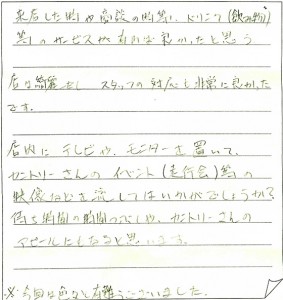 来店した時や商談の時等、ドリンク(飲み物)
等のサービスが有れば良かったと思う
店は綺麗だし スタッフの対応も非常に良かった
です。
店内に テレビや、モニターを置いて、
セントリーさんの イベント(走行会)等の
映像などを流してはいかがでしょうか?
待ち時間の時間つぶしや、セントリーさんの
アピールにもなると思います。
※今回は色々と有難うございました。